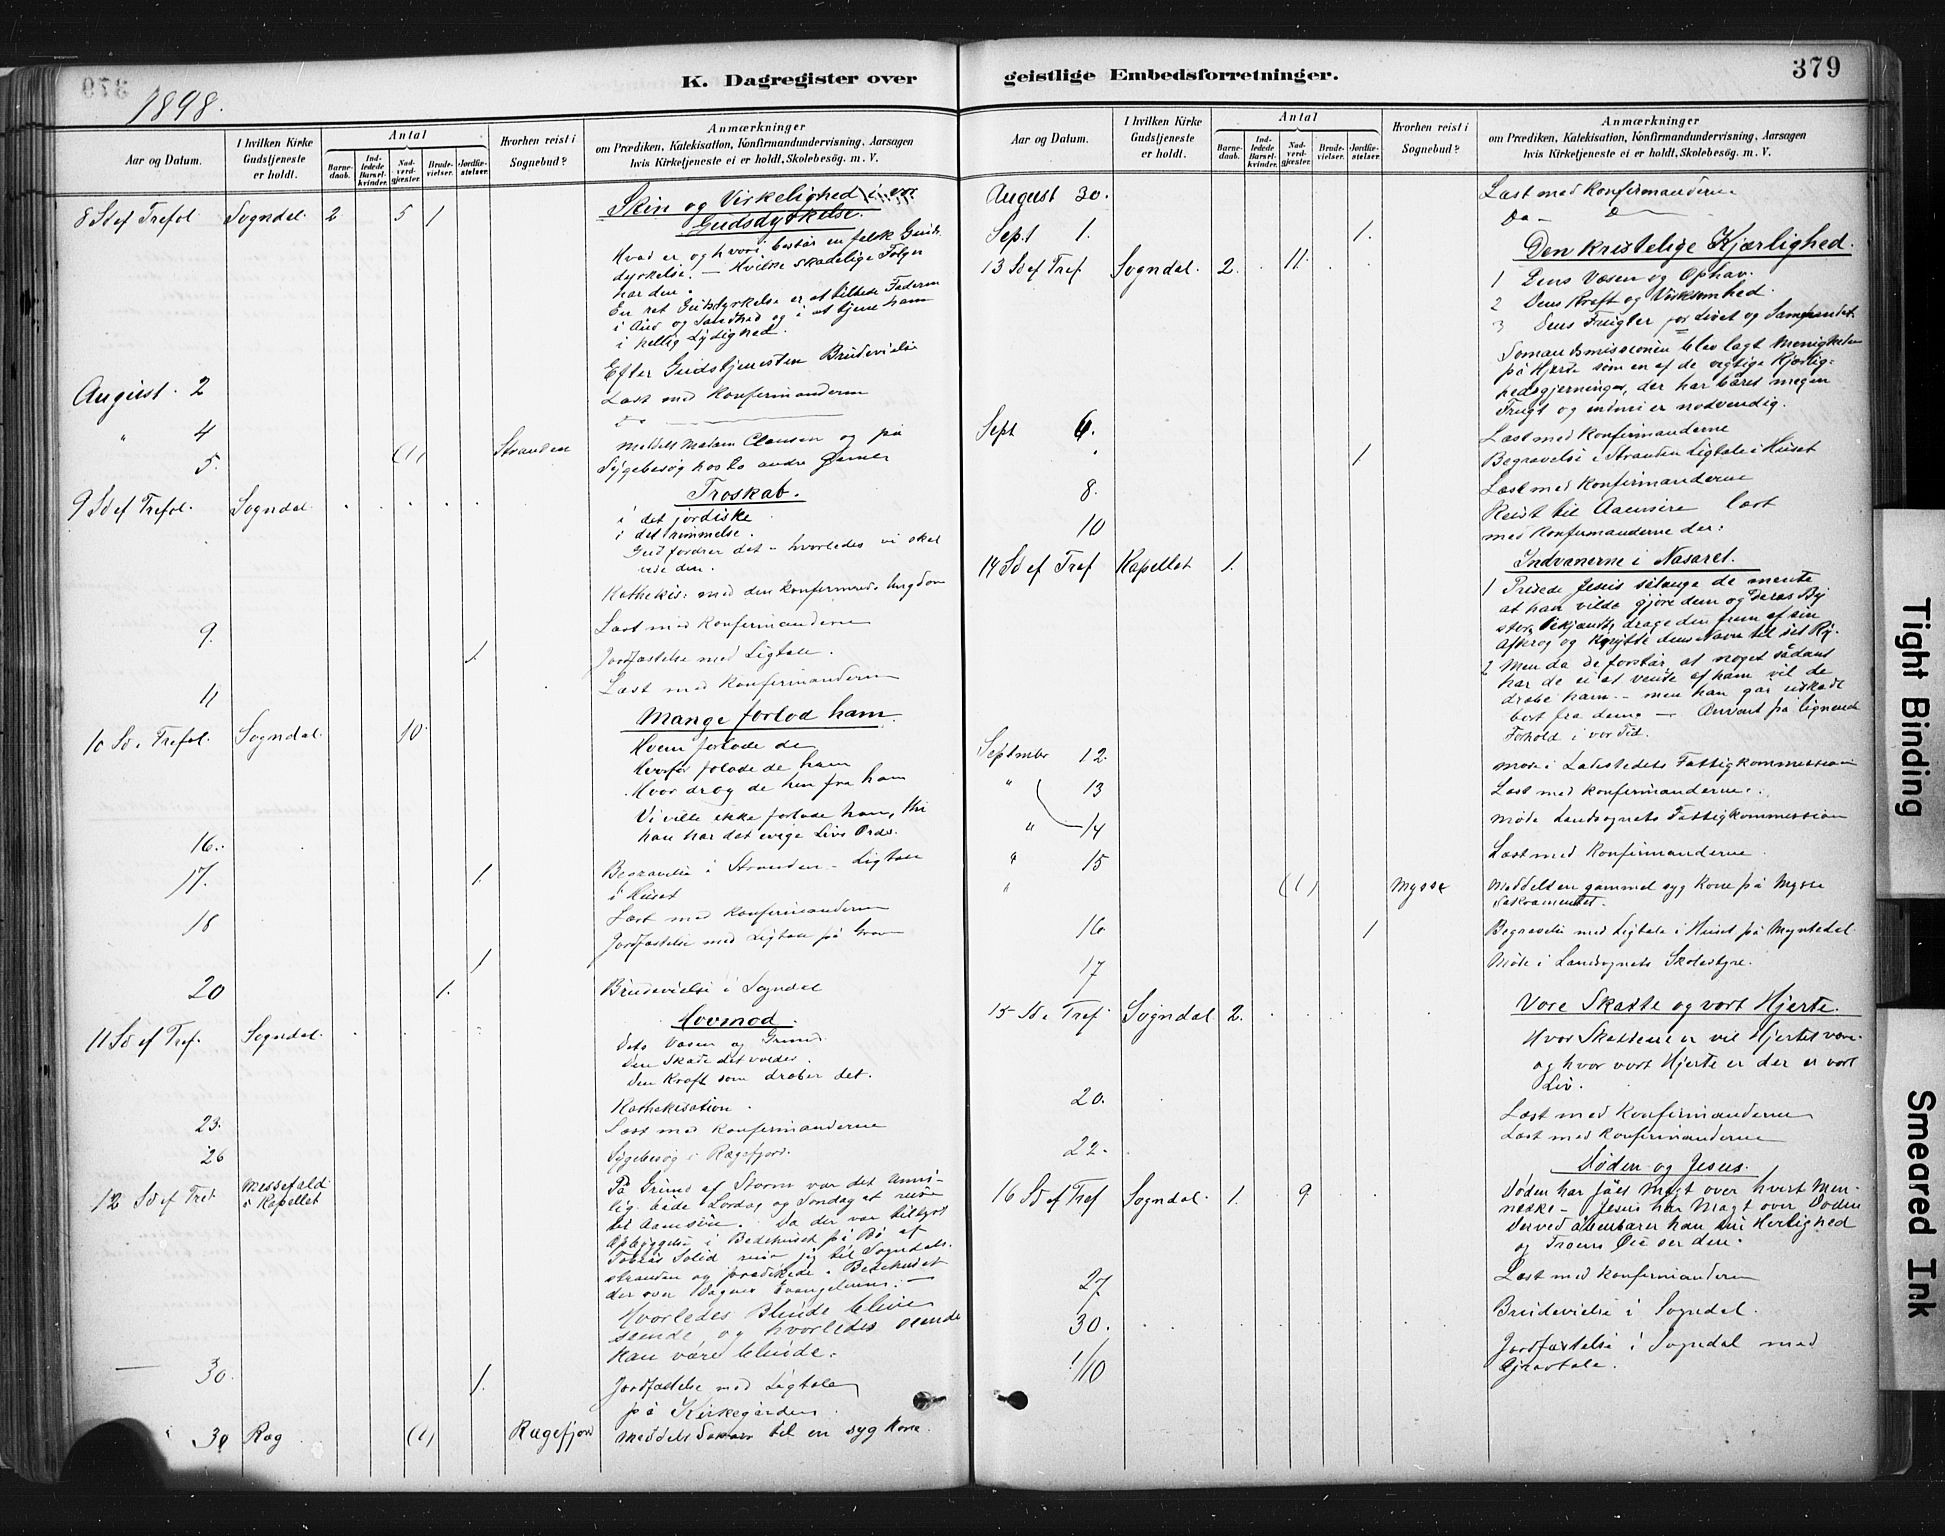 379
1898.
K. Dagregister over
Aar og Datum.
I hvilken Kirke Gudstjeneste er holdt.
Antal
Barnedaab.
Indledede Barselkvinder.
Nadverdgjæster.
Brudevielser.
Jordfæstelser.
Hvorhen reist i Sognebud?
Anmærkninger
om Prædiken, Katekisation, Konfirmandundervisning, Aarsagen
hvis Kirketjeneste ei er holdt, Skolebesøg. m. V.
8 S ef Trefol. Sogndal 2 5 1 Skin og Virkelighed i vor
Gudsdyrkelse.
Hvad er, og hvori består en falsk Guds-
dyrkelse. - Hvilke skadelige Følger
har den.
En ret Gudsdyrkelse er at tilbede Faderen
i Ånd og Sandhed og i at tjene ham
i hellig Lydighed.
Efter Gudstjenesten Brudevielse
August. 2 Læst med Konfirmanderne
" 4 Do
5. (1) Stranden Meddelt Madam Clausen og på
Sygebesøg hos to andre
9 Sd ef Trefol. Sogndal Troskab.
i det jordiske
i det himmelse.
Gud fordrer det - hvorledes vi skal
vise den.
Kathekis: med den konfirmerede Ungdom
9. Læst med Konfirmanderne
1. Jordfæstelse med Ligtale.
11 Læst med Konfirmanderne
10 Sd e Trefol. Sogndal. 10 Mange forlod ham.
Hvem forlode de
Hvorfor forlode de ham
Hvor drog de hen fra ham
Vi ville ikke forlade ham, thi
han har det evige Livs Ord.
16.
17. 1. Begravelse i Stranden - Ligtale
i Huset
18 Læst med Konfirmanderne
1 Jordfæstelse med Ligtale på Graven
20 1. Brudevielse i Sogndal
11 Sd ef Tref. Sogndal. Hovmod.
Dets Væsen og Grund.
Den Skade det volder.
Den Kraft som dræber det.
Kathekisation.
23. Læst med Konfirmanderne
26 Sygebesøg i Rægefjord.
12 Sd ef Tref. Messefald i Kapellet På Grund af Storm var det umu-
lig både Lørdag og Søndag at reise
til Aamsøre. Da der var tillyst
Opbyggelse i Bedehuset på Bø af
Tobias reise jeg til Sogndals-
stranden og prædikede i Bedehuset
der over Dagens Evangelium: -
Hvorledes Blinde blive
seende, og hvorledes seende
kan være blinde.
30. 1. Jordfæstelse med Ligtale
på Kirkegården.
30 Ræg. (1) Rægefjord meddelt Sakram til en syg Kone.
geistlige Embedsforretninger.
379
Aar og Datum.
I hvilken Kirke Gudstjeneste er holdt.
Antal
Barnedaab.
Indledede Barselkvinder.
Nadverdgjæster.
Brudevielser.
Jordfæstelser.
Hvorhen reist i Sognebud?
Anmærkninger
om Prædiken, Katekisation, Konfirmandundervisning, Aarsagen
hvis Kirketjeneste ei er holdt, Skolebesøg. m. V.
August 30. Læst med Konfirmanderne
Sept 1. 1. Do - D
13 Sd ef Tref Sogndal. 2. 11. Den kristelige Kjærlighed.
1 Dens Væsen og Ophav.
2 Dens Kraft og Virksomhed.
3 Dens Frugter for Livet og Samfundet.
Sømandsmissionen blev lagt Menigheden
på Hjerte som en af de vigtige Kjærlig-
hedsgjerninger, der har båret megen
Frugt og endnu er nødvendig.
Sept 6. Læst med Konfirmanderne
1 Begravelse i Stranden Ligtale i Huset
8. Læst med Konfirmanderne
10 Reist til Aamsøre læst
med Konfirmanderne der.
14 Sd ef Tref Kapellet 1. Indvånerne i Nasaret.
1 Prisede Jesus sålænge de mente
at han vilde gjøre dem og deres By
store bekjendt, drage den frem af sin
Afkrog og knytte dens Navn til sit Ry.
2 Men da de forstår, at noget sådant
har de ei at vente af ham vil de
dræbe ham - men han går uskadt
bort fra dem - Anvendt på lignende
Forhold i vor Tid.
September 12. Møde i Ladestedets Fattigkommission
" 13 Læst med Konfirmanderne.
" 14 Møde Landsognets Fattigkommission
" 15 Læst med Konfirmanderne
" (1) Mysse Meddelt en gammel syg Kone på Mysse
Sakramentet.
16 1 Begravelse med Ligtale i Huset på Myntedal
17 Møde i Landsognets Skolestyre.
15 Sd e Tref. Sogndal 2. Vore Skatte og vort Hjerte.
Hvor Skattene er vil Hjertet være
og hvor vort Hjerte er der er vort
Liv.
20. Læst med Konfirmanderne
22. Læst med Konfirmanderne
Døden og Jesus.
16 Sd ef Tref Sogndal. 1. 9 Døden har fået Magt over hvert Men-
neske - Jesus har Magt over Døden
Derved åbenbarer han sin Herlighed
og Troens Øie ser den.
27 Læst med Konfirmanderne
30. Brudevielse i Sogndal.
1/10 Jordfæstelse i Sogndal med
Gravtale.
Tight Binding
Smeared Ink